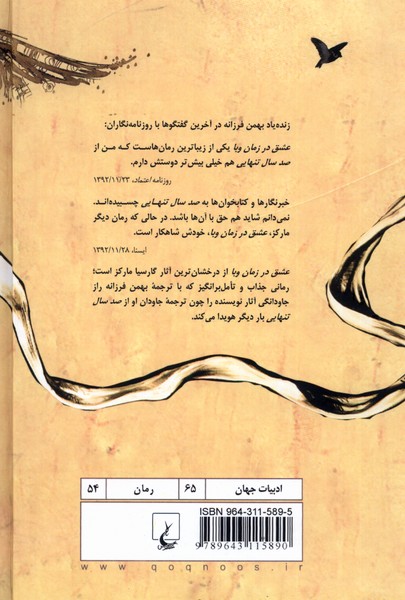 زنده‌یاد بهمن فرزانه در آخرین گفتگوها با روزنامه‌نگاران:
عشق در زمان وبا یکی از زیباترین رمان‌هاست که من از
صد سال تنهایی هم خیلی بیش‌تر دوستش دارم.
روزنامه اعتماد، ۱۳۹۲/۱۱/۲۳
خبرنگارها و کتابخوان‌ها به صد سال تنهایی چسبیده‌اند.
نمی‌دانم شاید هم حق با آن‌ها باشد. در حالی که رمان دیگر
مارکز، عشق در زمان وبا، خودش شاهکار است.
ایسنا، ۱۳۹۲/۱۱/۲۸
عشق در زمان وبا از درخشان‌ترین آثار گارسیا مارکز است؛
رمانی جذاب و تأمل‌برانگیز که با ترجمهٔ بهمن فرزانه راز
جاودانگی آثار نویسنده را چون ترجمهٔ جاودان او از صد سال
تنهایی بار دیگر هویدا می‌کند.
ادبیات جهان ۶۵ رمان ۵۴
ISBN 964-311-589-5
9 789643 115890
www.qoqnoos.ir